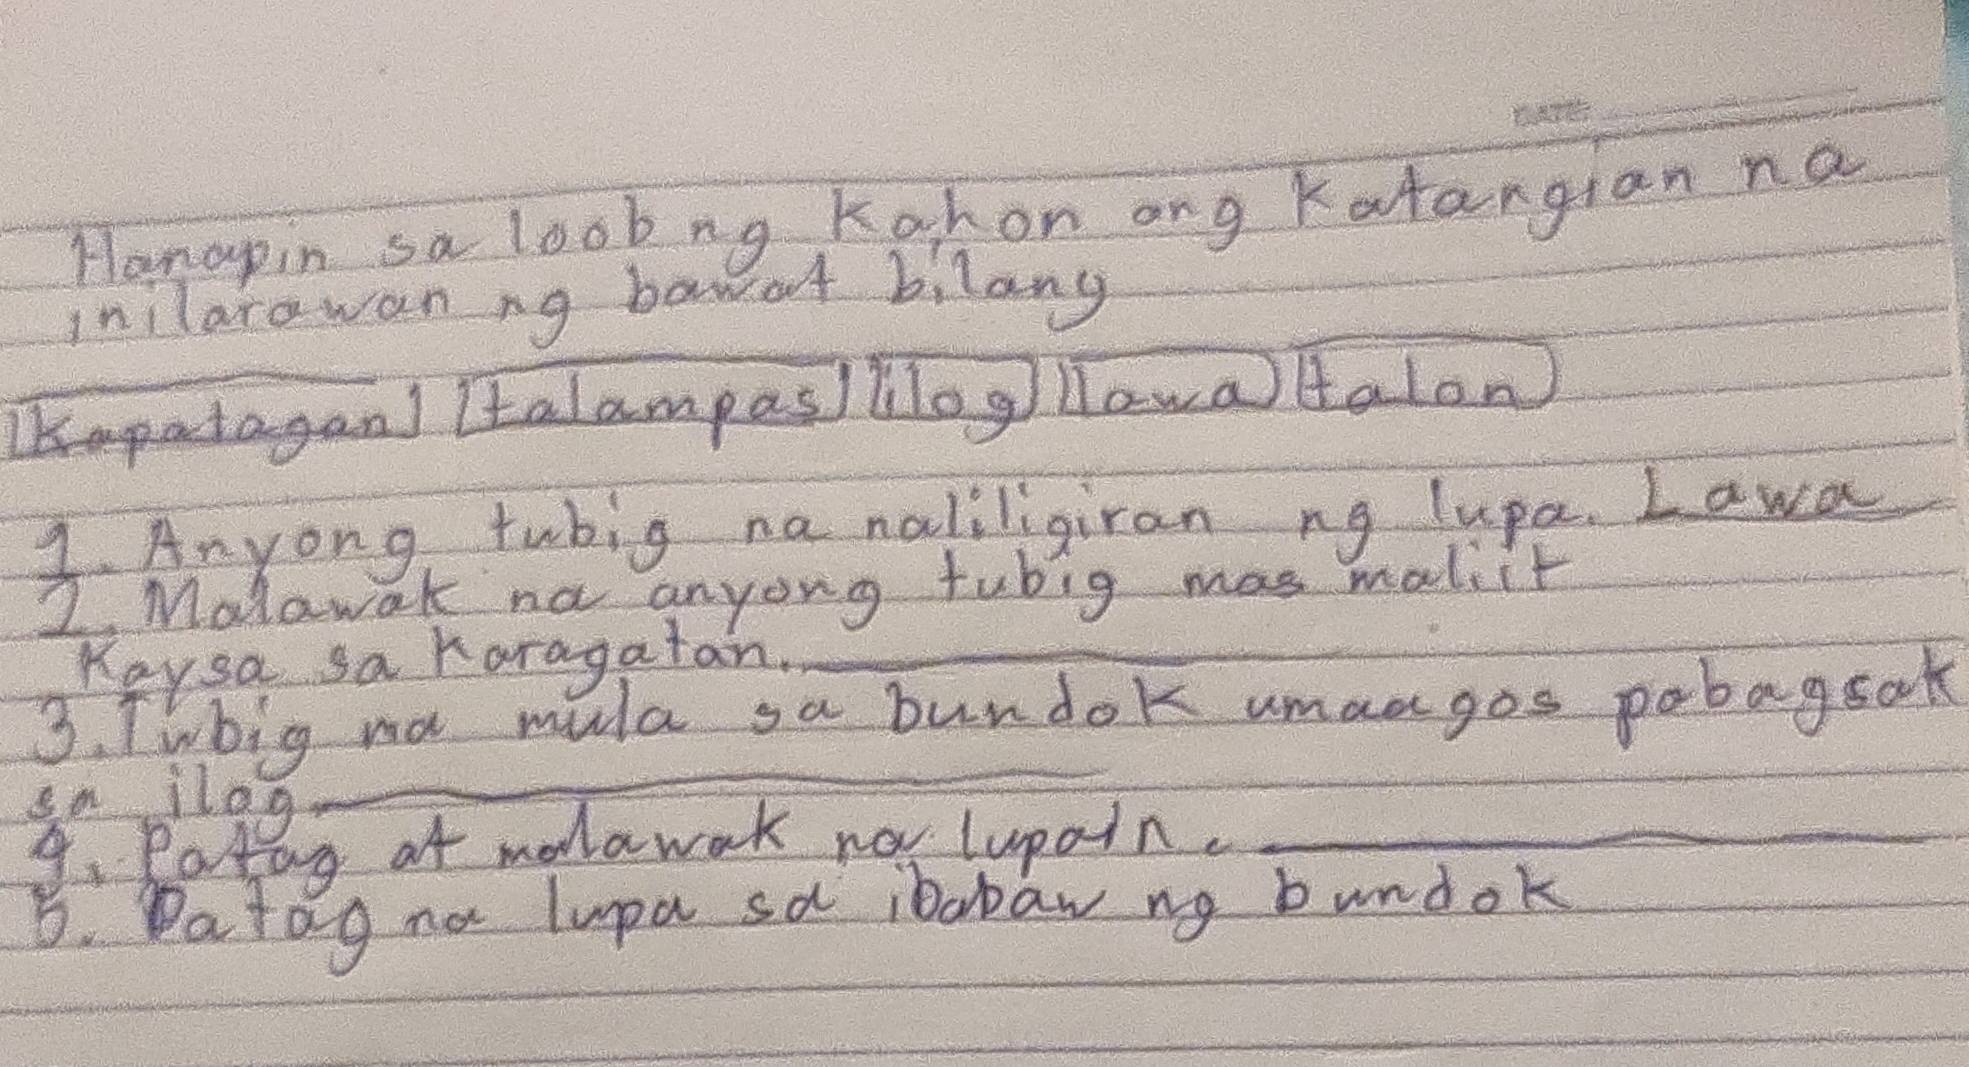 DATE
Hanapin sa loob ng kahon ang katangian na
inilarawan ng bawat bilang
Kapatagan talampas ilog lawa talon
1. Anyong tubig na naliligiran ng lupa. Lawa
2. Malawak na anyong tubig mas maliit
Kaysa sa karagatan.
3. Tubig na mula sa bundok umaagos pabagsak
sa ilog
4. Patag at malawak na lupain.
5. Patag na lupa sa ibabaw ng bundok